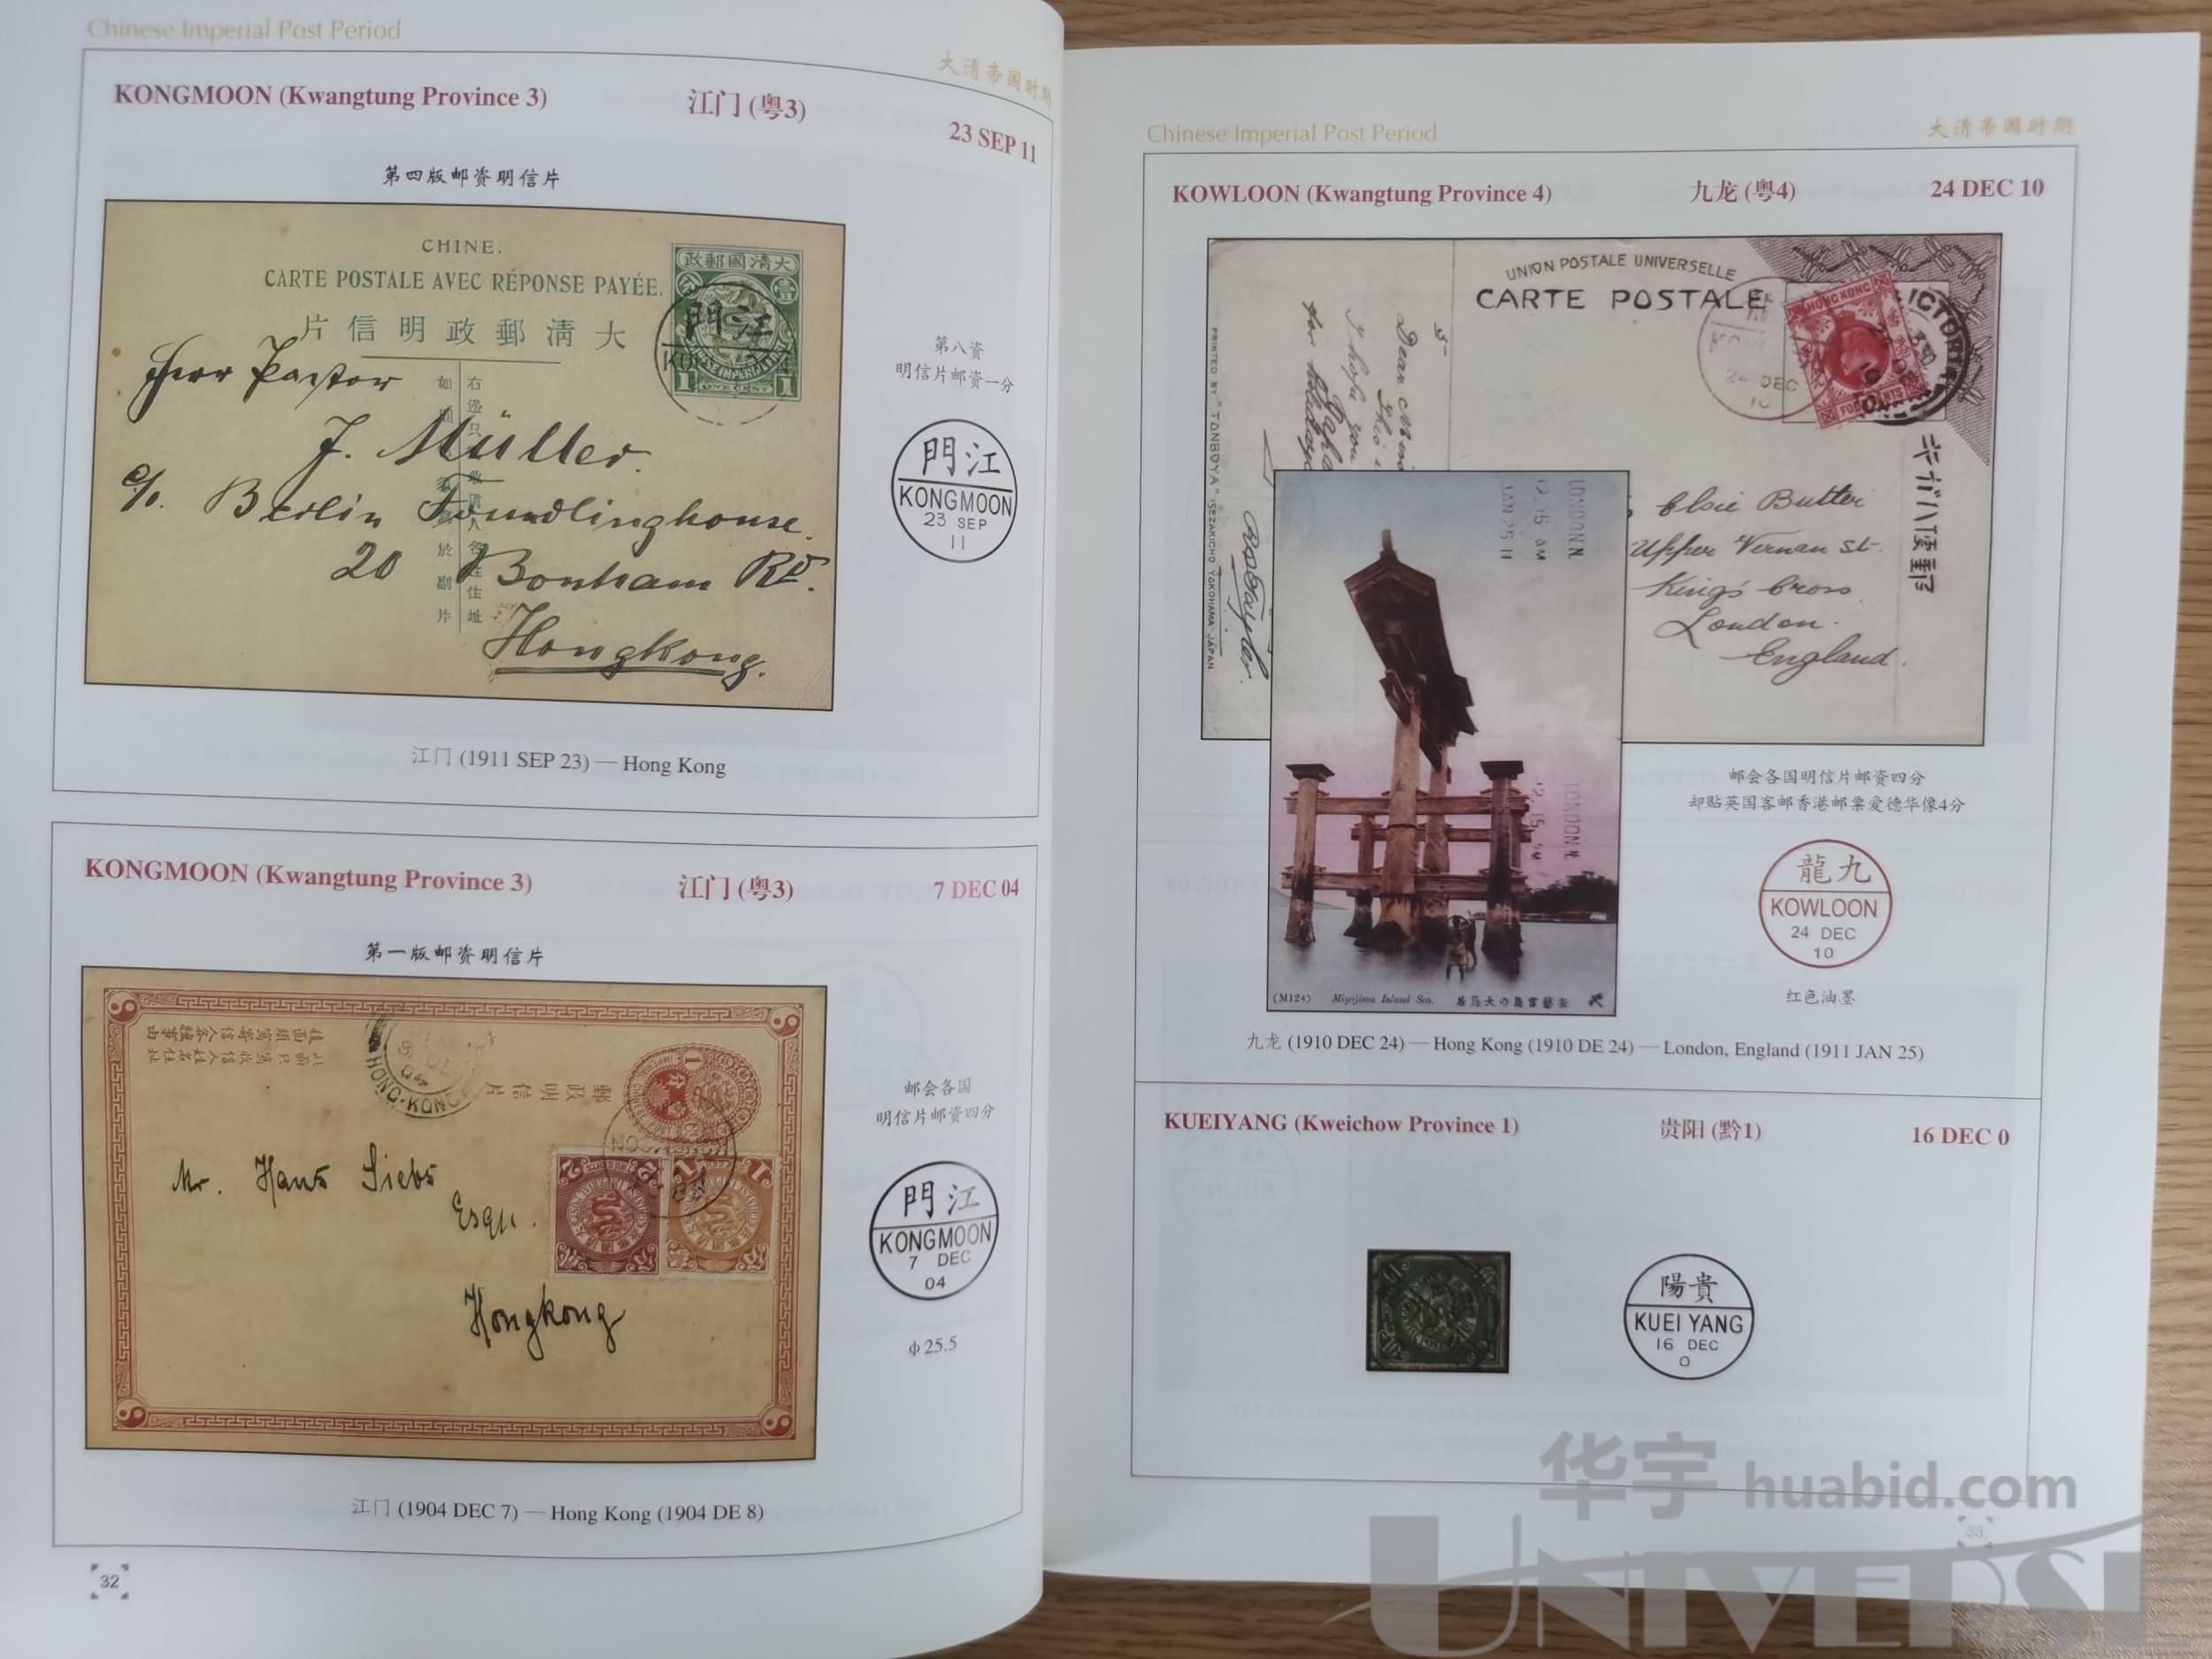 Chinese Imperial Post Period
大清帝国时期
KONGMOON (Kwangtung Province 3)
江门 (粤3)
23 SEP 11
第四版邮资明信片
CHINE.
CARTE POSTALE AVEC RÉPONSE PAYÉE.
片信明政郵清大
政郵國清大
門江
ONE CENT
Herr Pastor
J. Müller.
c/o. Berlin Foundlinghouse.
20 Bonham Rd.
Hongkong.
第八资
明信片邮资一分
門江
KONGMOON
23 SEP
11
江门 (1911 SEP 23) — Hong Kong
KONGMOON (Kwangtung Province 3)
江门 (粤3)
7 DEC 04
第一版邮资明信片
HONG-KONG
郵政明信片
Mr. Hans Siebs
Esqu.
Hongkong
邮会各国
明信片邮资四分
門江
KONGMOON
7 DEC
04
ф25.5
江门 (1904 DEC 7) — Hong Kong (1904 DE 8)
32
Chinese Imperial Post Period
大清帝國时期
KOWLOON (Kwangtung Province 4)
九龙 (粤4)
24 DEC 10
UNION POSTALE UNIVERSELLE
CARTE POSTALE
HONG KONG
24 DEC
10
PRINTED BY "TONBOYA" ISEZAKICHO YOKOHAMA JAPAN.
Dear
I hope you
for holidays
Elsie Butler
Upper Vernan St.
King's Cross.
London.
England.
LONDON.N.
12.15 AM
JAN 25 11
(M124) Miyajima Inland Sea.
安藝宮島の大鳥居
邮会各国明信片邮资四分
却贴英国客邮香港邮票爱德华像4分
龍九
KOWLOON
24 DEC
10
红色油墨
九龙 (1910 DEC 24) — Hong Kong (1910 DE 24) — London, England (1911 JAN 25)
KUEIYANG (Kweichow Province 1)
贵阳 (黔1)
16 DEC 0
陽貴
KUEI YANG
16 DEC
0
华宇 huabid.com
33
UNIVERSE